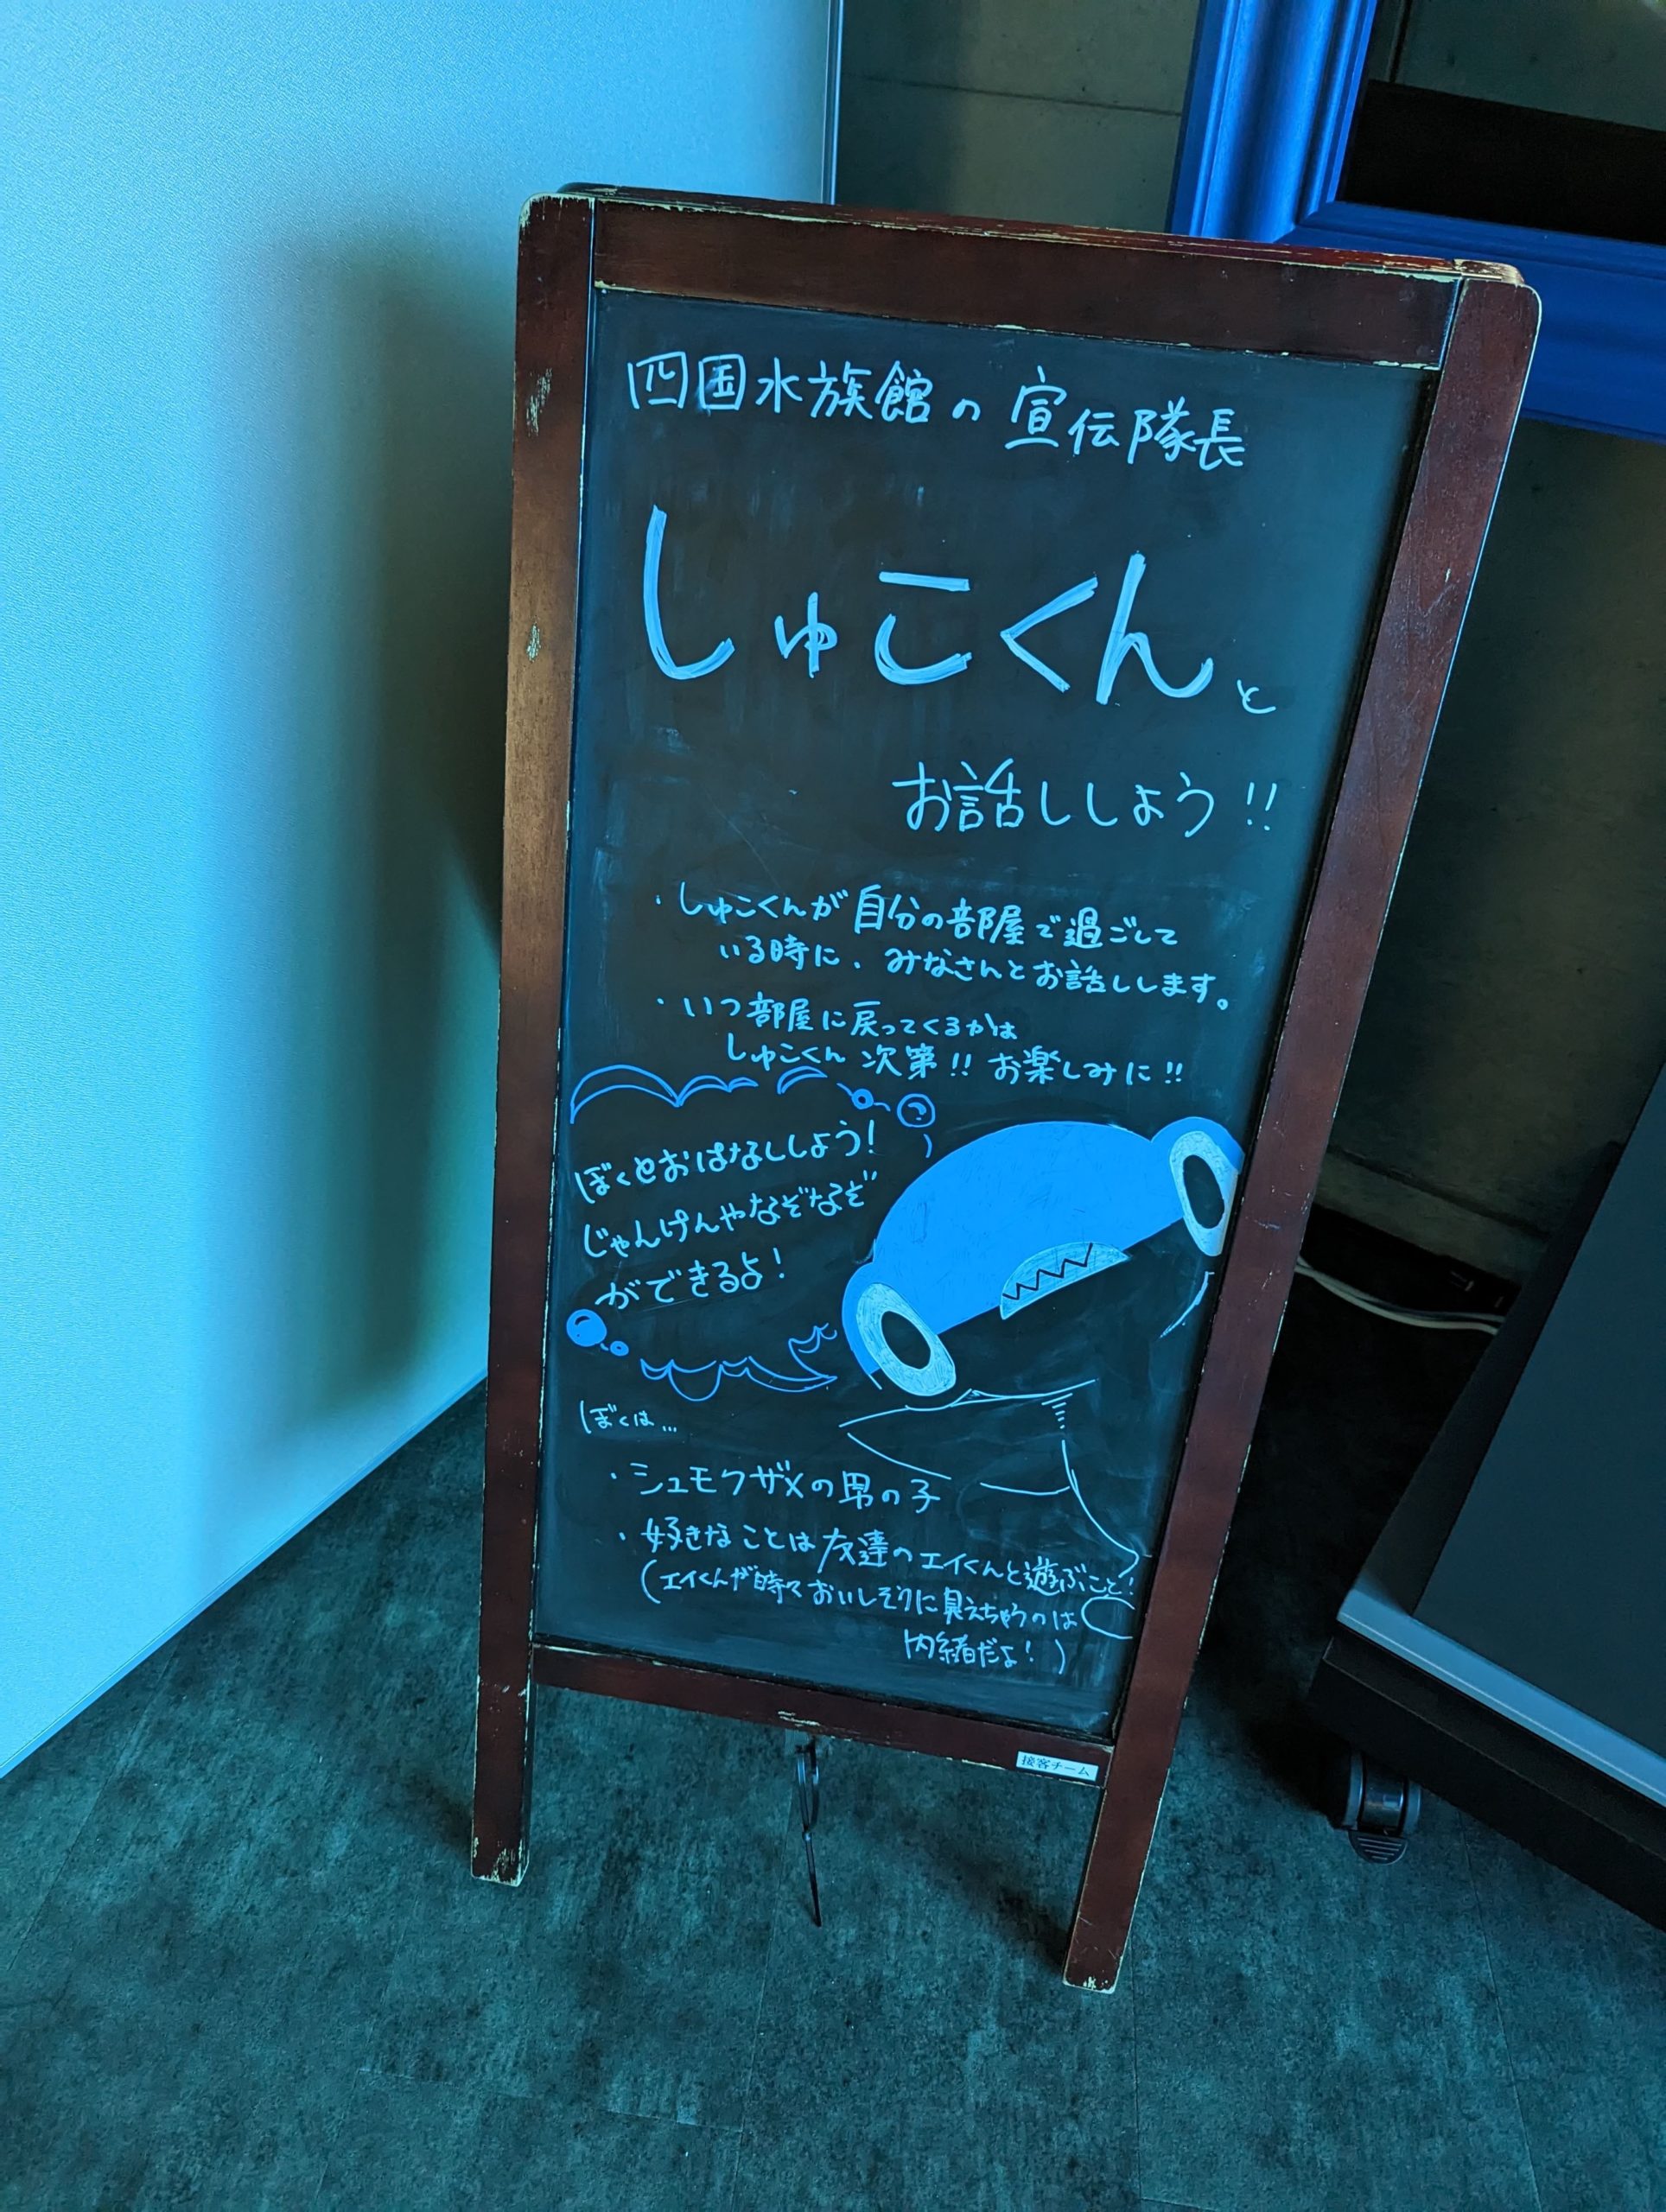 四国水族館の宣伝隊長
しゅこくんと
お話ししよう!!
・しゅこくんが自分の部屋で過ごして
いる時に、みなさんとお話しします。
・いつ部屋に戻ってくるかは
しゅこくん次第!!お楽しみに!!
ぼくとおはなししよう!
じゃんけんやなぞなぞ
ができるよ!
ぼくは...
・シュモクザメの男の子
・好きなことは友達のエイくんと遊ぶこと!
(エイくんが時々おいしそうに見えちゃうのは
内緒だよ!)
接客チーム